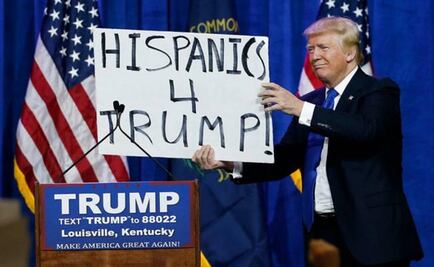 HISPANICS
4
TRUMP!
TRUMP
TEXT "TRUMP" to 88022
Louisville, Kentucky
MAKE AMERICA GREAT AGAIN!